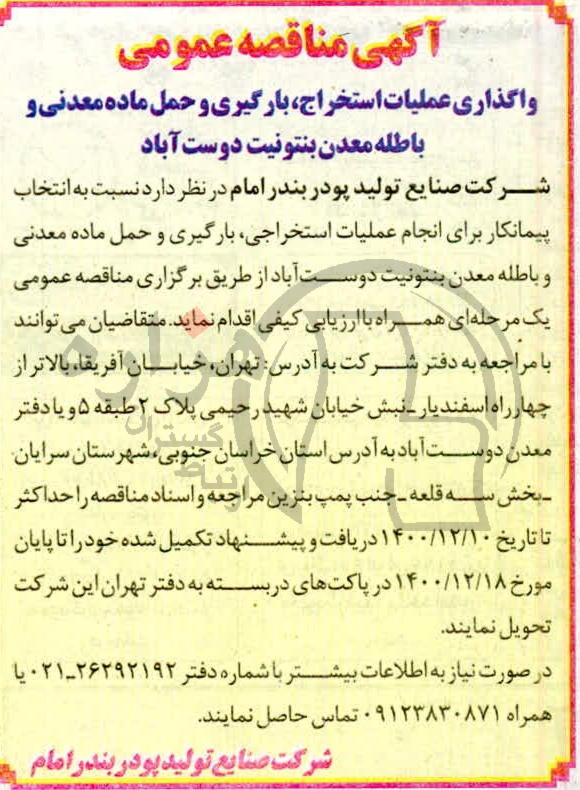 آگهی مناقصه عمومی
واگذاری عملیات استخراج، بارگیری و حمل ماده معدنی و
باطله معدن بنتونیت دوست آباد
شرکت صنایع تولید پودر بندر امام در نظر دارد نسبت به انتخاب
پیمانکار برای انجام عملیات استخراجی، بارگیری و حمل ماده معدنی
و باطله معدن بنتونیت دوست‌آباد از طریق برگزاری مناقصه عمومی
یک مرحله‌ای همراه با ارزیابی کیفی اقدام نماید. متقاضیان می‌توانند
با مراجعه به دفتر شرکت به آدرس: تهران، خیابان آفریقا، بالاتر از
چهارراه اسفندیار ـ نبش خیابان شهید رحیمی پلاک ۲ طبقه ۵ و یا دفتر
معدن دوست‌آباد به آدرس استان خراسان جنوبی، شهرستان سرایان
ـ بخش سه قلعه ـ جنب پمپ بنزین مراجعه و اسناد مناقصه را حداکثر
تا تاریخ ۱۴۰۰/۱۲/۱۰ دریافت و پیشنهاد تکمیل شده خود را تا پایان
مورخ ۱۴۰۰/۱۲/۱۸ در پاکت‌های دربسته به دفتر تهران این شرکت
تحویل نمایند.
در صورت نیاز به اطلاعات بیشتر با شماره دفتر ۲۶۲۹۲۱۹۲ـ۰۲۱ یا
همراه ۰۹۱۲۳۸۳۰۸۷۱ تماس حاصل نمایند.
شرکت صنایع تولید پودر بندر امام